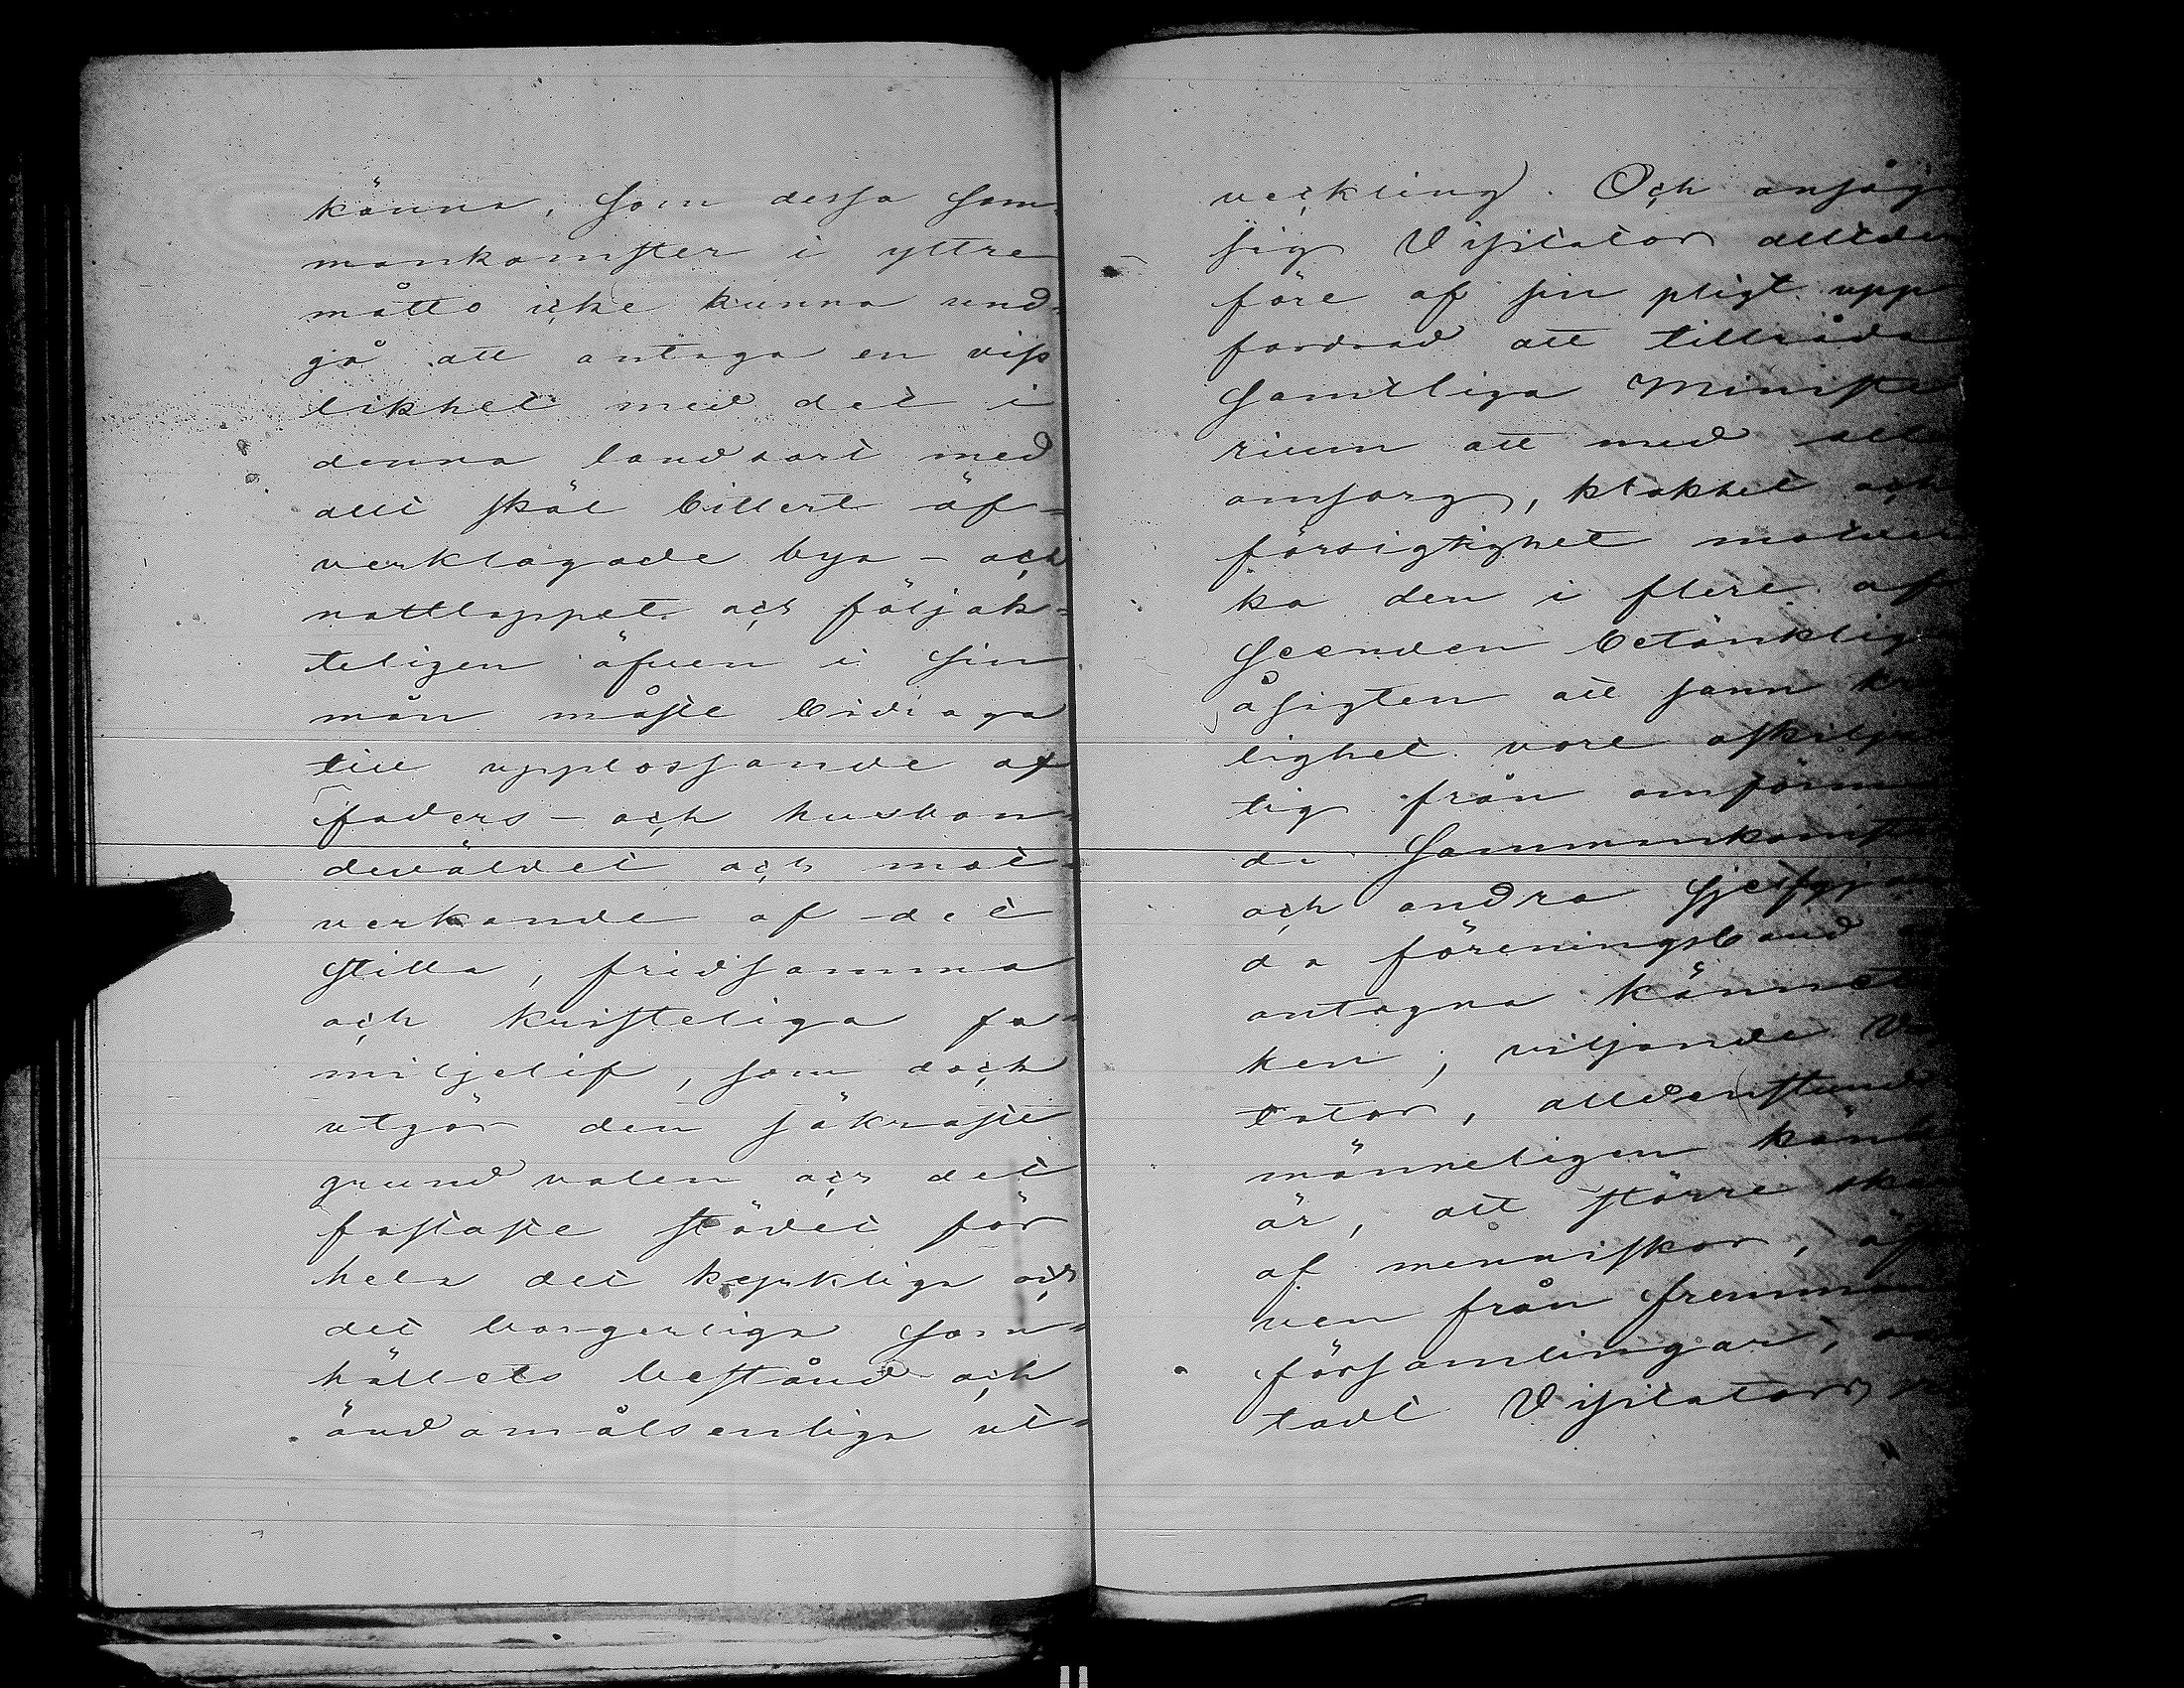 känna, som dessa sam-
mankomster i yttre
måtto icke kunna und-
gå att antaga en viss
likhet med det i
denna landsort med
allt skäl billert öf-
verklagade bya- och
nattloppet och följak-
teligen äfven i sin
mån måste bidraga
till upplossande af
faders- och husbon-
deväldet och mot-
verkande af det
stilla, fridsamma
och kristeliga fa-
miljelif, som doch
utgör den säkraste
grundvalen och det
fastaste stödet för
hela det kyrkliga och
det borgerliga sam-
hällets bestånd och
ändamålsenliga ut-
veckling. Och ansåg
sig Visitator alltder
före af sin pligt upp
fordrad att tillråda
samtliga Ministe
rium att med all
omsorg, klokhet och
försigtighet motver
ka den i flere af
seenden betänkliga
åsigten att sann kri
lighet vore oskilje
lig från omförm
da Sammankomst
och andra sjelfgjor
da föreningsband
antagna kännete
ken; viljande Vi
tator, alldenstund
männeligen känt
är, att större ska
af menniskor, äf
ven från fremman
församlingar,
tadt Visitators